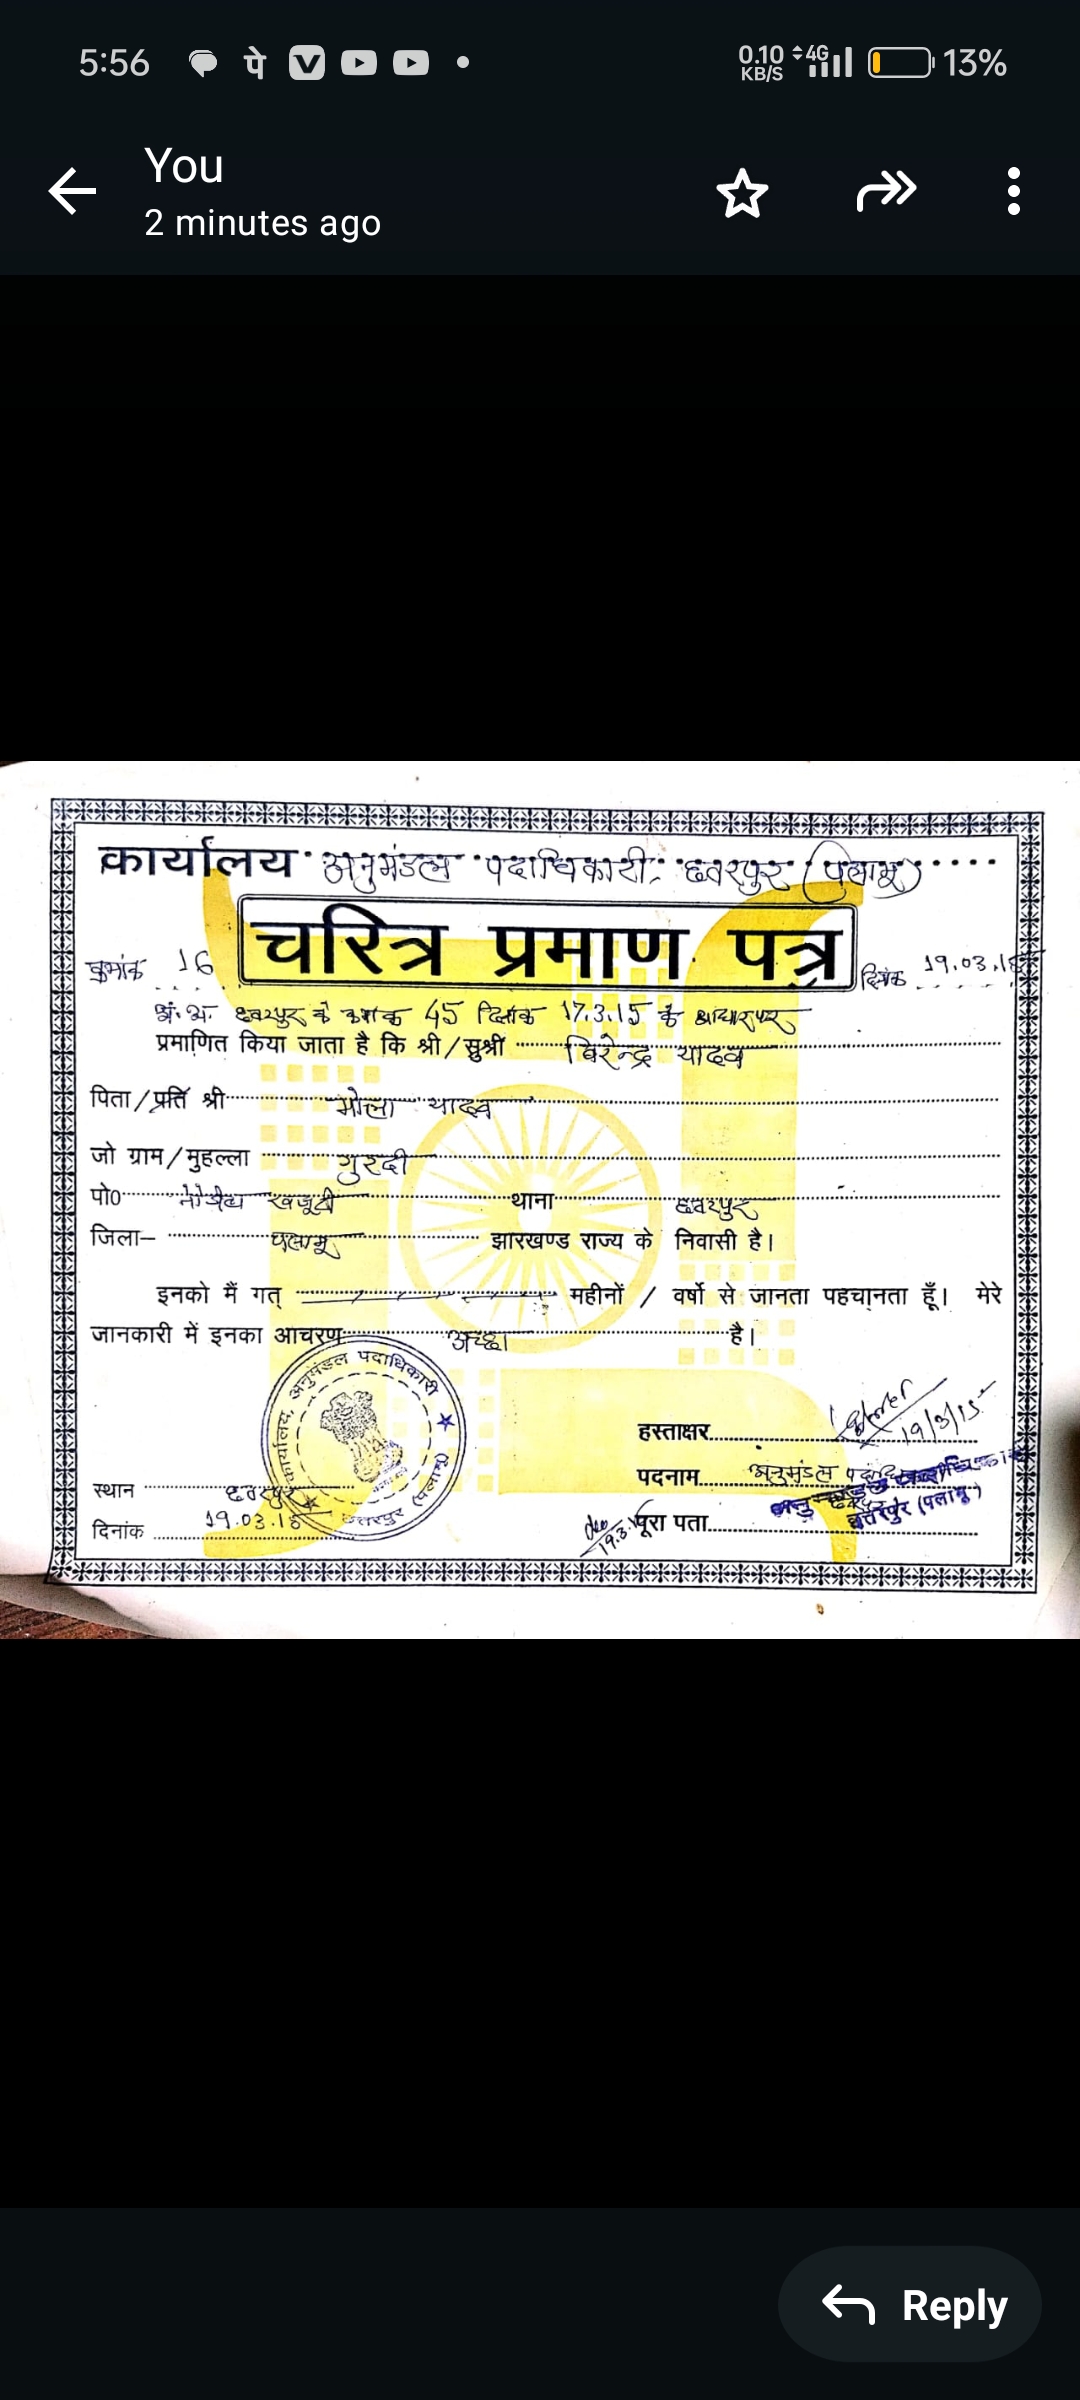 5:56 पे V 0.10 KB/S 4G 13%
You
2 minutes ago
कार्यालय अनुमंडल पदाधिकारी, छतरपुर (पलामू)
चरित्र प्रमाण पत्र
क्रमांक 16 दिनांक 19.03.15
अं.अ. छतरपुर के क्रमांक 45 दिनांक 17.3.15 के आधार पर
प्रमाणित किया जाता है कि श्री/सुश्री विरेन्द्र यादव
पिता/प्रति श्री भोला यादव
जो ग्राम/मुहल्ला गुरदी
पो0 खजूरी थाना छतरपुर
जिला– पलामू झारखण्ड राज्य के निवासी है।
इनको मैं गत् महीनों / वर्षो से जानता पहचानता हूँ। मेरे
जानकारी में इनका आचरण अच्छा है।
कार्यालय, अनुमंडल पदाधिकारी ★ छत्तरपुर (पलामू) ★
हस्ताक्षर 19/3/15
पदनाम अनुमंडल
स्थान छतरपुर
छत्तरपुर (पलामू)
दिनांक 19.03.15
19.3. पूरा पता
Reply